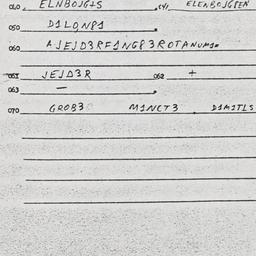 010 ELNBOJG+S 041 ELENBOJGPEN
050 D1LQN81
060 AJEJD3RF1NG83ROTANUM1N
051 JEJD3R 062 +
063 —
070 GROB3 M1NCT3 D1M1TLS